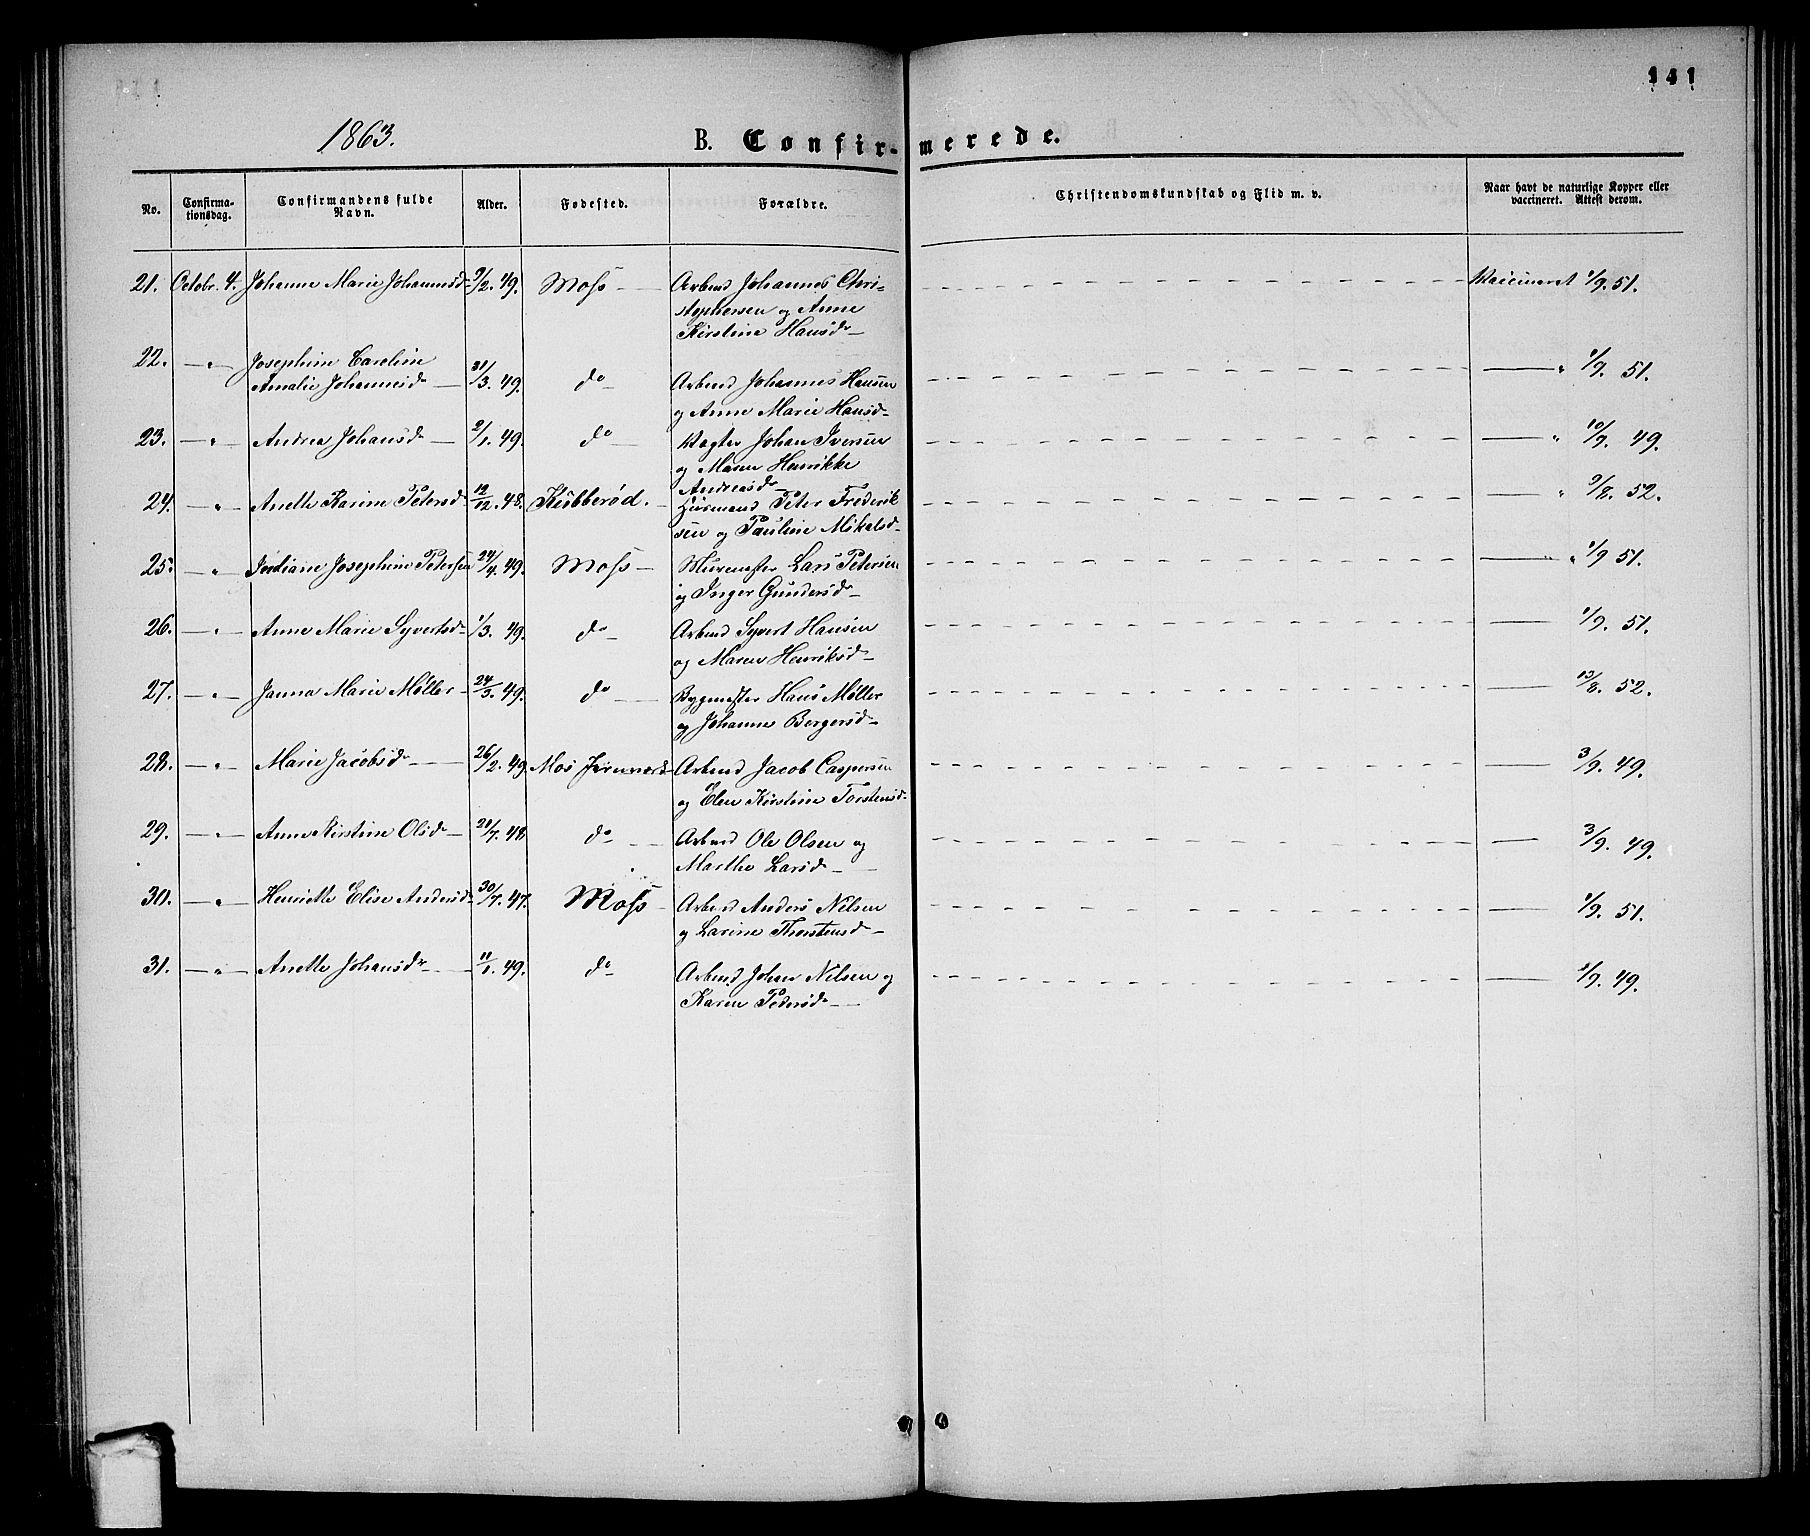 141
1863.
B. Confirmerede.
No. Confirmationsdag. Confirmandens fulde Navn. Alder. Fødested. Forældre. Christendomskundskab og Flid m. v. Naar havt de naturlige Kopper eller vaccineret. Attest derom.
21. Octobr. 4. Johanne Marie Johannesd 9/2. 49. Moss Arbmd Johannes Chri- Vaccineret 1/9. 51.
stophersen og Anne
Kirstine Hansd
22. — " — Josephine Caroline
Amalie Johannesd 31/3. 49. do Arbmd Johannes Hansen — " 1/9. 51.
og Anne Marie Hansd
23. — " — Andrea Johansd 2/1. 49. do Vogter Johan Iversen — " 10/9. 49.
og Maren Henrikke
Andreasd
24. — " — Anette Karine Petersd 12/12. 48. Kubberød. Huusmand Peter Frederik — " 9/8. 52.
sen og Pauline Mikalsd
25. — " — Josephine Petersen 24/4. 49. Moss Murmester Lars Petersen — " 1/9 51.
og Inger Gundersd
26. — " — Anne Marie Syvertsd 1/3. 49. do Arbmd Syvert Hansen — 1/9. 51.
og Maren Henriksd
27. — " — Janna Marie Møller 24/3. 49. do Bygmester Hans Møller — 13/8. 52.
og Johanne Borgersd
28. — " — Marie Jacobsd 26/2. 49. Mos Jernværk Arbmd Jacob Caspersen — 3/9. 49.
og Elen Kirstine Torstensd
29. — " — Anne Kirstine Olsd 21/7. 48 do Arbmd Ole Olsen og — 3/9. 49.
Marthe Larsd
30. — " — Henriette Elise Andersd 30/7. 47. Moss Arbmd Anders Nilsen — 1/9. 51.
og Larine Thorstensd
31. — " — Anette Johansd 11/1. 49. do Arbmd Johan Nilsen og — /9. 49.
Karen Pedersd